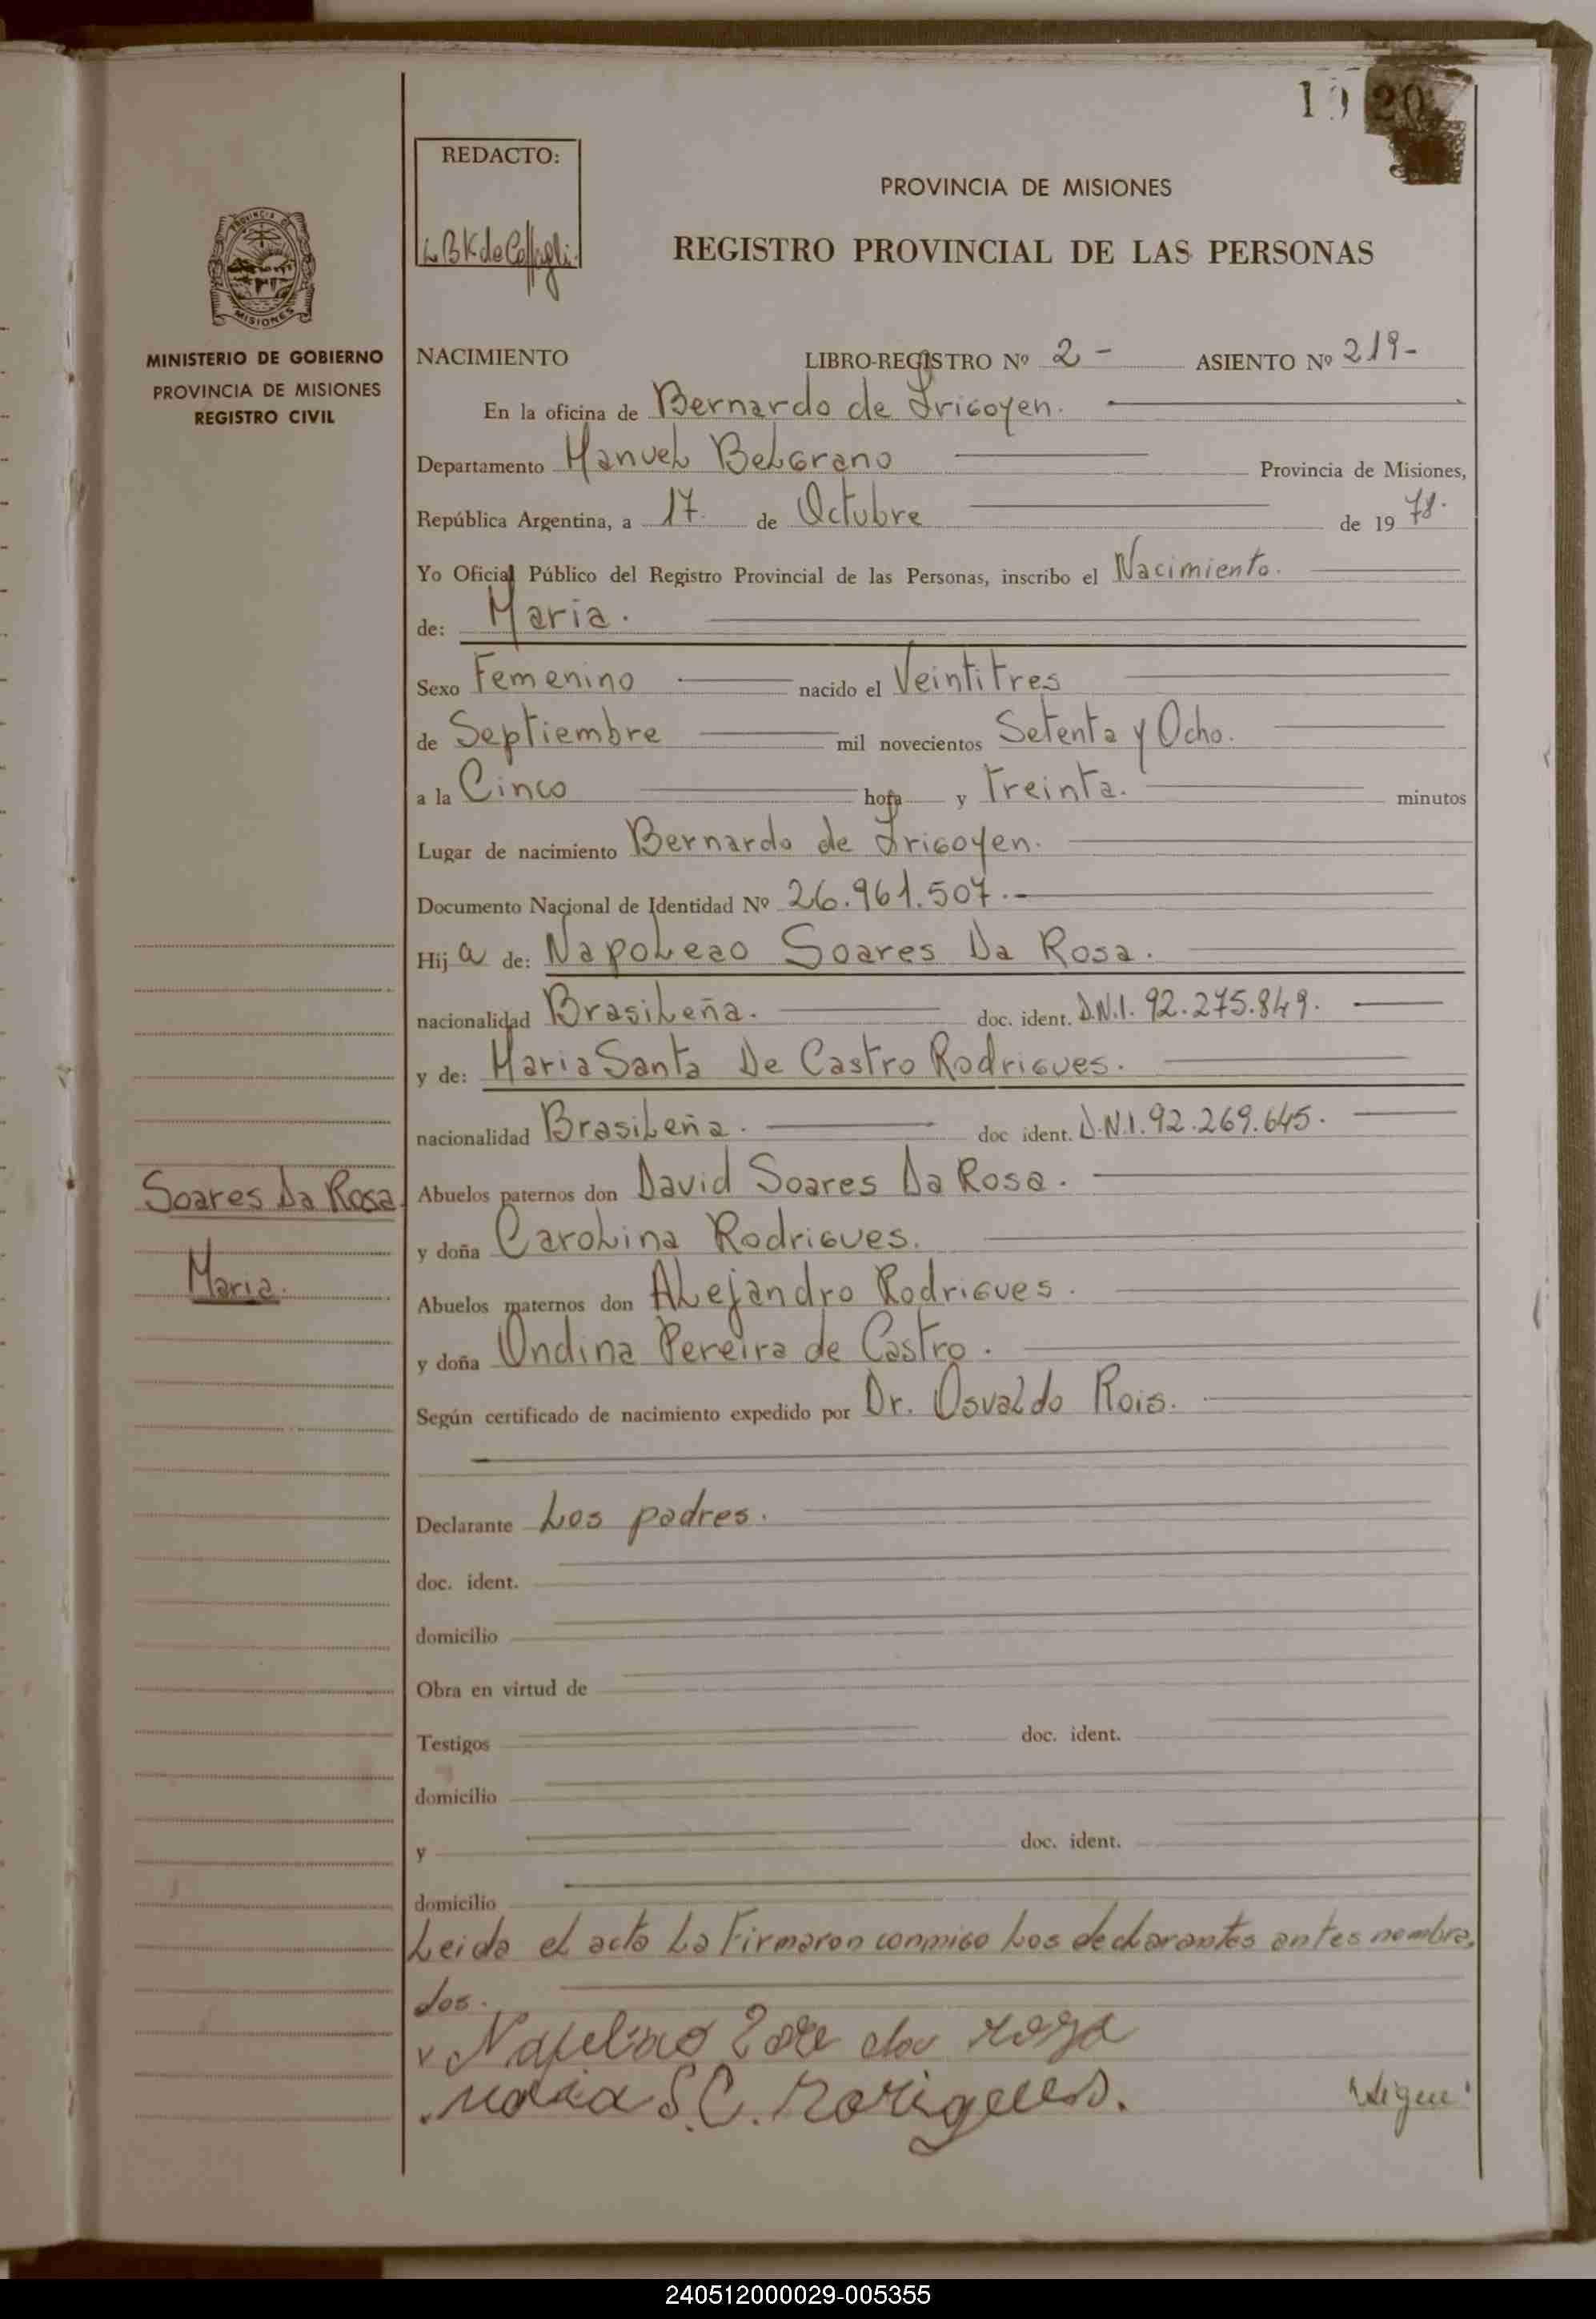 19 20
REDACTO:
PROVINCIA DE MISIONES
REGISTRO PROVINCIAL DE LAS PERSONAS
MISIONES
MINISTERIO DE GOBIERNO
PROVINCIA DE MISIONES
REGISTRO CIVIL
NACIMIENTO LIBRO-REGISTRO Nº 2 - ASIENTO Nº 219-
En la oficina de Bernardo de Irigoyen.
Departamento Manuel Belgrano Provincia de Misiones,
República Argentina, a 17. de Octubre de 19 78.
Yo Oficial Público del Registro Provincial de las Personas, inscribo el Nacimiento.
de: Maria.
Sexo Femenino nacido el Veintitres
de Septiembre mil novecientos Setenta y Ocho.
a la Cinco hora y Treinta. minutos
Lugar de nacimiento Bernardo de Irigoyen.
Documento Nacional de Identidad Nº 26.961.507.-
Hij a de: Napoleao Soares Da Rosa.
nacionalidad Brasileña. doc. ident. D.N.I. 92.275.849.
y de: Maria Santa De Castro Rodrigues.
nacionalidad Brasileña. doc ident. D.N.I. 92.269.645.
Soares Da Rosa
Maria.
Abuelos paternos don David Soares Da Rosa.
y doña Carolina Rodrigues.
Abuelos maternos don Alejandro Rodrigues.
y doña Ondina Pereira de Castro.
Según certificado de nacimiento expedido por Dr. Osvaldo Rois.
Declarante Los padres.
doc. ident.
domicilio
Obra en virtud de
Testigos doc. ident.
domicilio
y doc. ident.
domicilio
Leida el acta la firmaron conmigo los declarantes antes nombra,
dos.
da rosa
Maria S.C. Rorigues.
"Sigue"
240512000029-005355